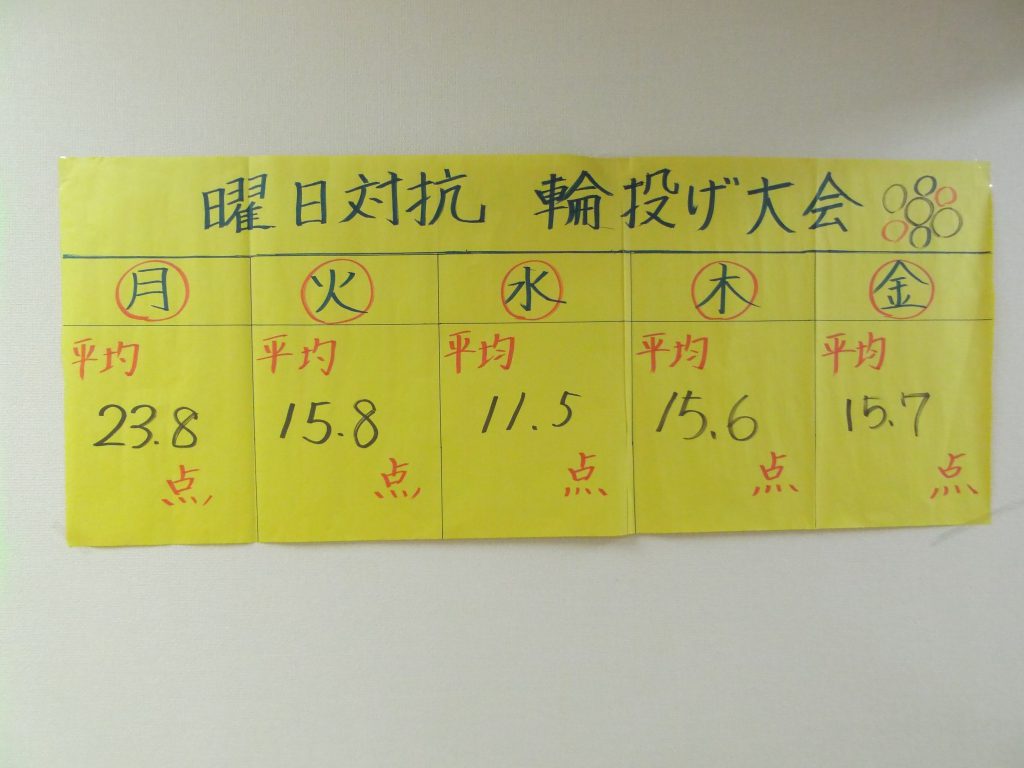 曜日対抗 輪投げ大会
月 火 水 木 金
平均 平均 平均 平均 平均
23.8 15.8 11.5 15.6 15.7
点 点 点 点 点